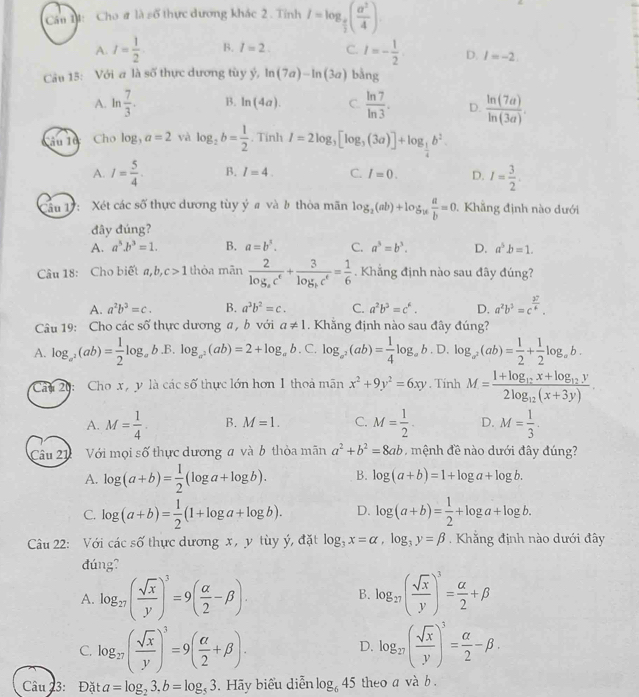 Câu 14: Cho a là số thực dương khác 2 . Tính I = log_{a/2}(a²/4)
A. I = 1/2. B. I = 2 . C. I = -1/2. D. I = -2.
Câu 15: Với a là số thực dương tùy ý, ln(7a) - ln(3a) bằng
A. ln 7/3. B. ln(4a). C. ln 7/ln 3. D. ln(7a)/ln(3a).
Câu 16: Cho log₃ a = 2 và log₂ b = 1/2. Tính I = 2log₃[log₃(3a)] + log_{1/4} b².
A. I = 5/4. B. I = 4. C. I = 0. D. I = 3/2.
Câu 17: Xét các số thực dương tùy ý a và b thỏa mãn log₂(ab) + log₁₆ a/b = 0. Khẳng định nào dưới
đây đúng?
A. a⁵.b³ = 1. B. a = b³. C. a⁵ = b³. D. a³.b = 1.
Câu 18: Cho biết a,b,c > 1 thỏa mãn 2/log_a c⁶ + 3/log_b c⁶ = 1/6. Khẳng định nào sau đây đúng?
A. a²b³ = c. B. a³b² = c. C. a²b³ = c⁶. D. a²b³ =
Câu 19: Cho các số thực dương a, b với a ≠ 1. Khẳng định nào sau đây đúng?
A. log_{a²}(ab) = 1/2 log_a b .B. log_{a²}(ab) = 2 + log_a b . C. log_{a²}(ab) = 1/4 log_a b . D. log_{a²}(ab) = 1/2 + 1/2 log_a b .
Câu 20: Cho x, y là các số thực lớn hơn 1 thoả mãn x² + 9y² = 6xy . Tính M = (1 + log₁₂ x + log₁₂ y)/(2log₁₂(x + 3y)).
A. M = 1/4. B. M = 1. C. M = 1/2. D. M = 1/3.
Câu 21 Với mọi số thực dương a và b thỏa mãn a² + b² = 8ab , mệnh đề nào dưới đây đúng?
A. log(a + b) = 1/2(log a + log b). B. log(a + b) = 1 + log a + log b.
C. log(a + b) = 1/2(1 + log a + log b). D. log(a + b) = 1/2 + log a + log b.
Câu 22: Với các số thực dương x, y tùy ý, đặt log₃ x = α , log₃ y = β . Khẳng định nào dưới đây
đúng?
A. log₂₇(√x/y)³ = 9(α/2 - β). B. log₂₇(√x/y)³ = α/2 + β
C. log₂₇(√x/y)³ = 9(α/2 + β). D. log₂₇(√x/y)³ = α/2 - β .
Câu 23: Đặt a = log₂ 3, b = log₅ 3. Hãy biểu diễn log₆ 45 theo a và b .